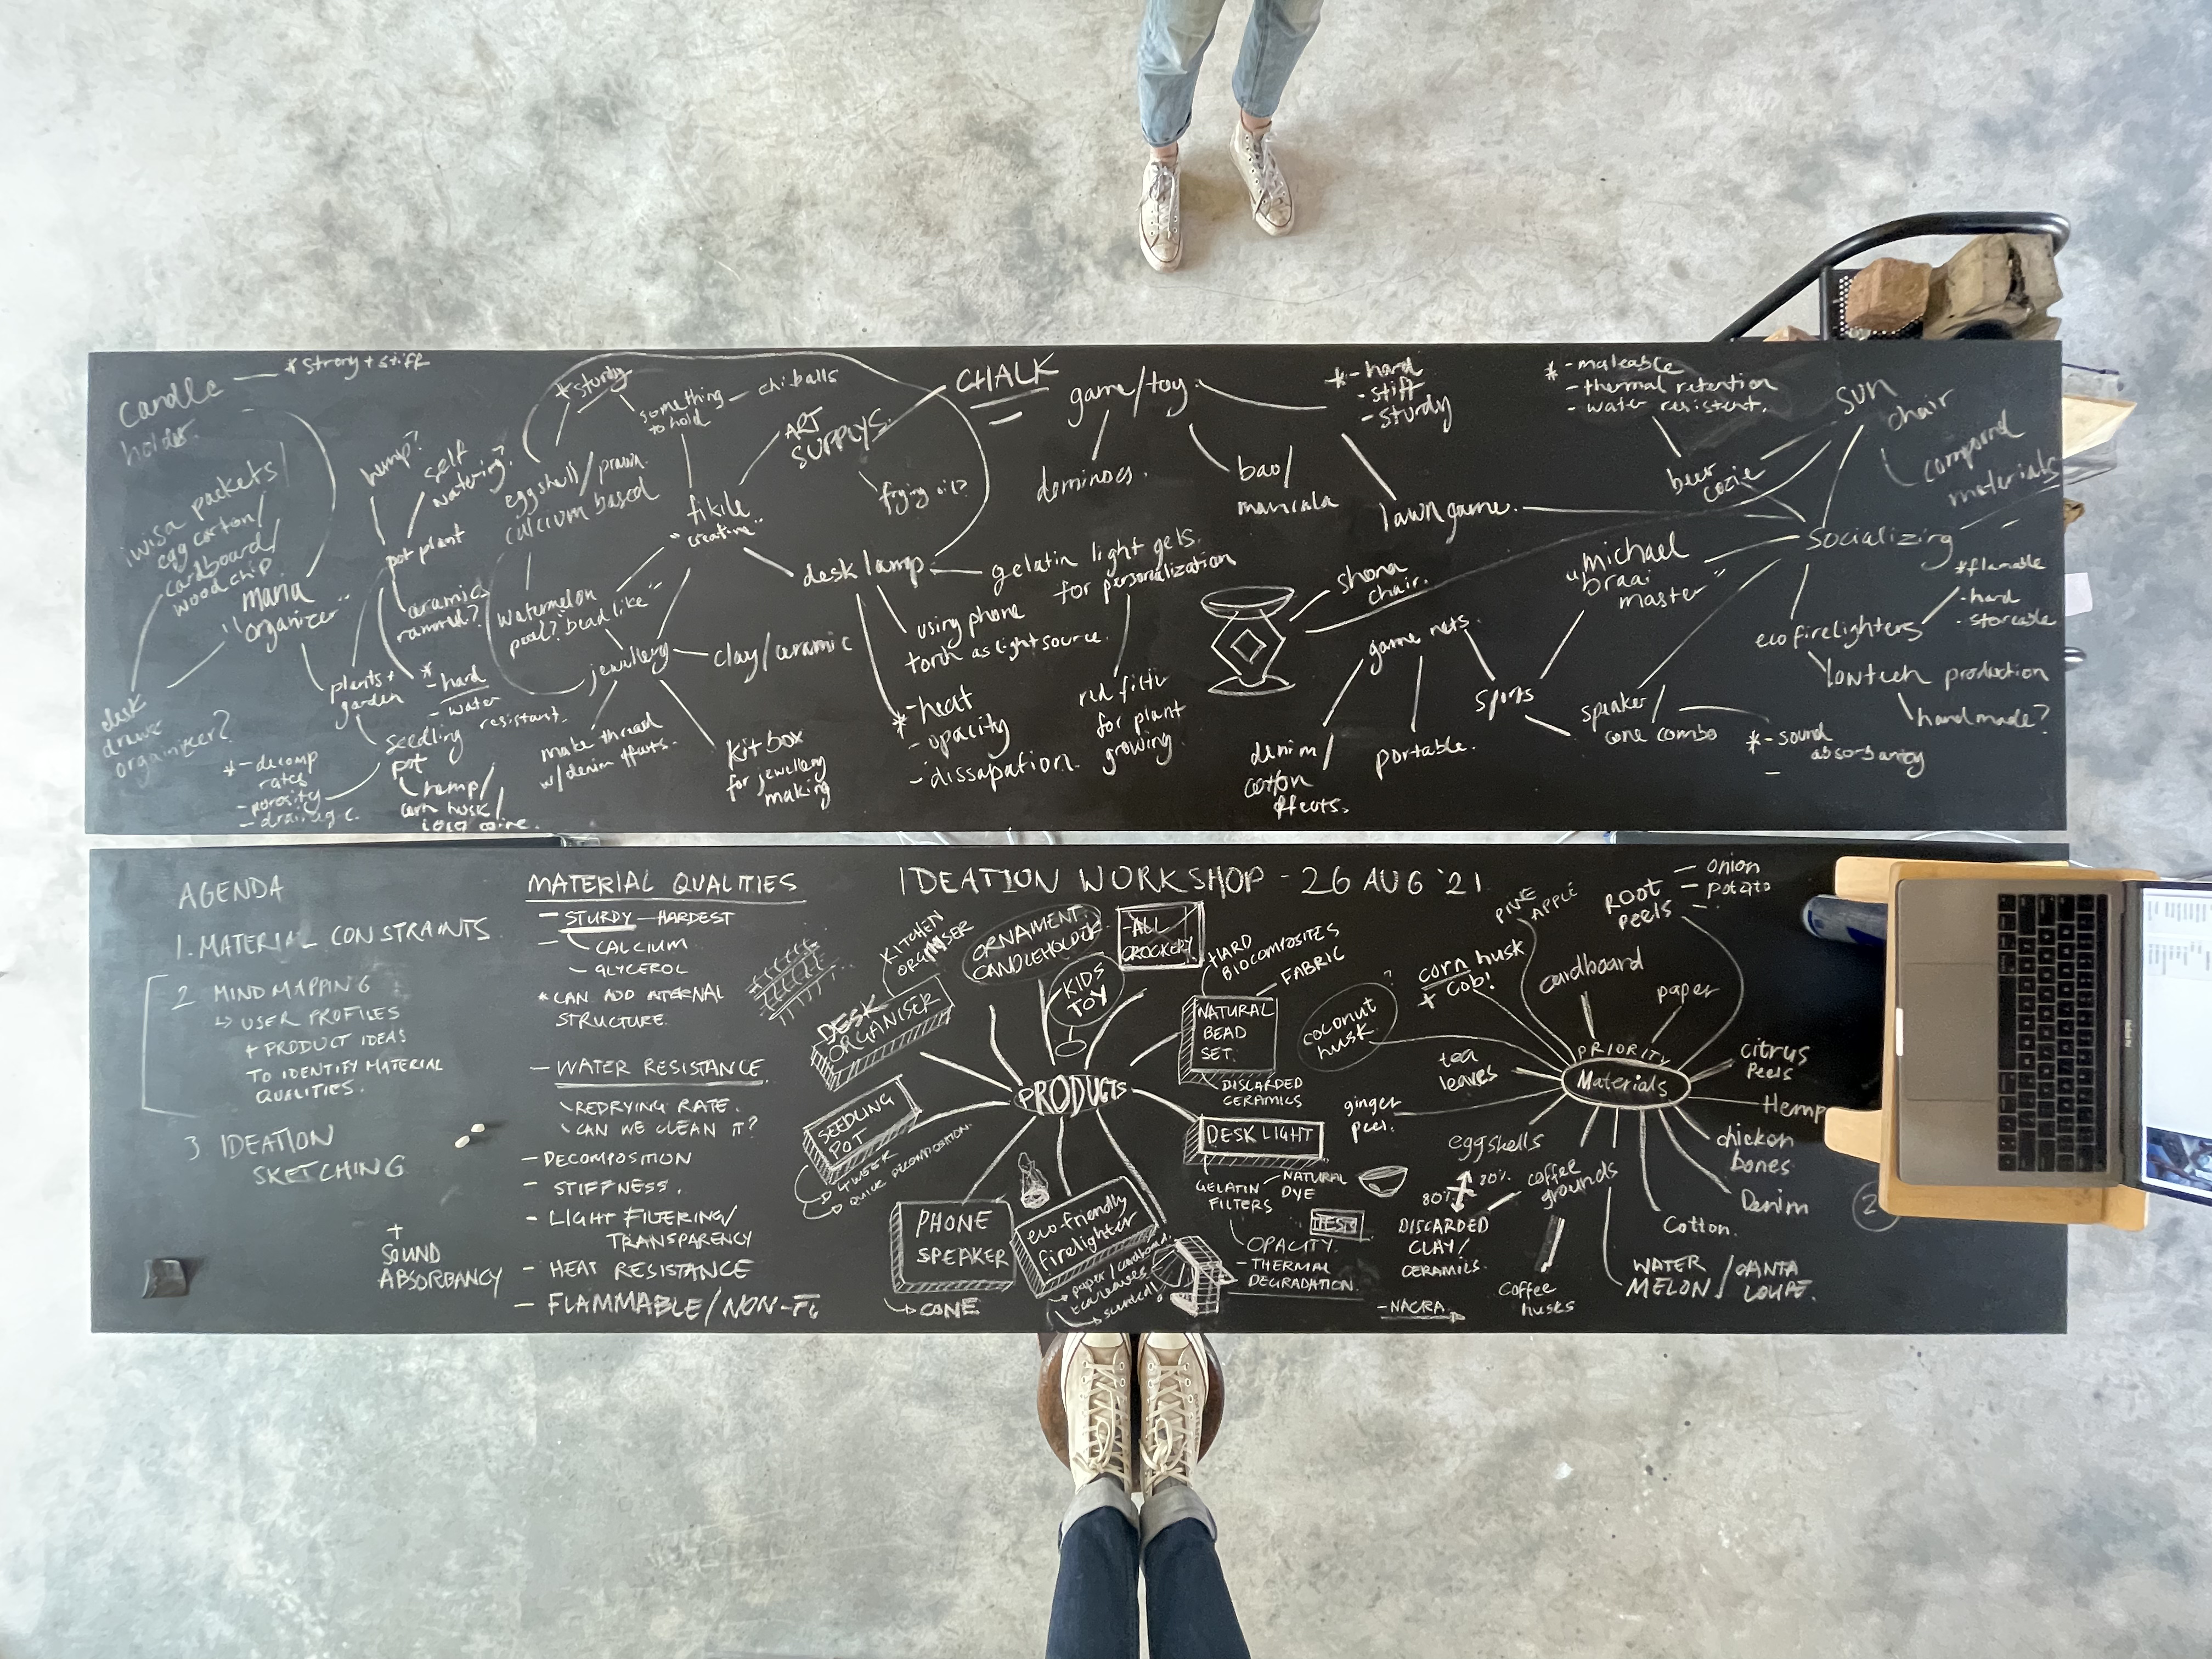 candle
holder.
* strong + stiff
iwisa packets/
egg carton/
cardboard/
woodchip.
"mana
organizer"
desk
organizer?
hemp?
self
watering?
pot plant
ceramics
rammed?
plants +
garden
* - hard
- water
resistant.
seedling
pot
hemp/
corn husk/
* - decomp
rates
- porosity
- drainage.
* sturdy
something
to hold
chi balls
eggshell/prawn
calcium based
watermelon
peel? "bead like"
fikile
"creative"
ART
SUPPLYS.
CHALK
frying oil?
jewellery
clay/ceramic
make thread
w/denim offcuts.
kit box
for jewellery
making
desk lamp.
gelatin light gels.
for personalization
using phone
torch as light source.
* - heat
- opacity
- dissapation.
red filter
for plant
growing.
game/toy.
dominoes.
bao/
mancala
* - hard
- stiff
- sturdy
lawn game.
* - maleable
- thermal retention
- water resistent.
beer
cozie
sun
chair
compound
materials
socializing
"michael
braai
master"
shona
chair.
game nets.
denim/
cotton
offcuts.
portable.
sports
speaker/
cone combo
* - sound
absorbancy
-
* flamable
- hard
- storeable
eco firelighters
lowtech production
handmade?
AGENDA
1. MATERIAL CONSTRAINTS
2 MIND MAPPING
↳ USER PROFILES
+ PRODUCT IDEAS
TO IDENTIFY MATERIAL
QUALITIES.
3 IDEATION
SKETCHING
MATERIAL QUALITIES
- STURDY - HARDEST
- CALCIUM
- GLYCEROL
* CAN ADD INTERNAL
STRUCTURE.
- WATER RESISTANCE
- REDRYING RATE.
- CAN WE CLEAN IT?
- DECOMPOSITION
- STIFFNESS.
- LIGHT FILTERING/
TRANSPARENCY
- HEAT RESISTANCE
- FLAMMABLE/NON-FL
+
SOUND
ABSORBANCY
IDEATION WORKSHOP - 26 AUG '21
KITCHEN
ORGANISER
DESK
ORGANISER
ORNAMENT
CANDLEHOLDER
KIDS
TOY
- ALL
CROCKERY
HARD
BIOCOMPOSITES
FABRIC
NATURAL
BEAD
SET.
DISCARDED
CERAMICS
PRODUCTS
SEEDLING
POT
QUICK DECOMPOSITION.
PHONE
SPEAKER
↳ CONE
eco friendly
firelighter
paper/cardboard.
tea leaves
scented!
DESK LIGHT
GELATIN
FILTERS
NATURAL
DYE
TESTS
OPACITY.
- THERMAL
DEGRADATION.
PINE
APPLE
ROOT
PEELS
- onion
- potato
-
corn husk
+ cob!
cardboard
paper
coconut
husk
?
tea
leaves
ginger
peel.
PRIORITY
Materials
citrus
peels
Hemp
chicken
bones
Denim
Cotton.
WATER
MELON/CANTA
LOUPE.
eggshells
coffee
grounds
20%
80%
DISCARDED
CLAY/
CERAMICS.
Coffee
husks
- NACRA
2